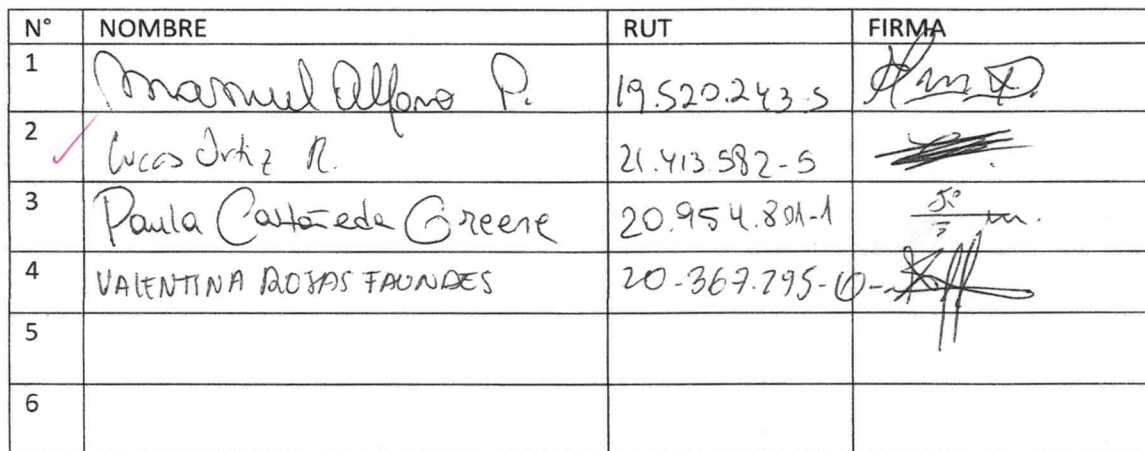 N° NOMBRE RUT FIRMA
1 Manuel Alfaro P. 19.520.243-5
2 Lucas Ortiz R. 21.413.582-5
3 Paula Castañeda Greene 20.954.801-1
4 VALENTINA ROJAS FAUNDES 20-367.295-0
5
6